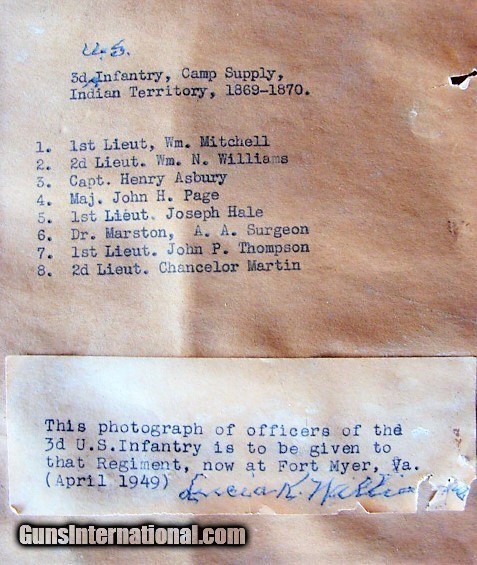 U.S.
3d Infantry, Camp Supply,
Indian Territory, 1869-1870.
1. 1st Lieut, Wm. Mitchell
2. 2d Lieut. Wm. N. Williams
3. Capt. Henry Asbury
4. Maj. John H. Page
5. 1st Lieut. Joseph Hale
6. Dr. Marston, A. A. Surgeon
7. 1st Lieut. John P. Thompson
8. 2d Lieut. Chancelor Martin
This photograph of officers of the
3d U.S.Infantry is to be given to
that Regiment, now at Fort Myer, Va.
(April 1949) K.
GunsInternational.com